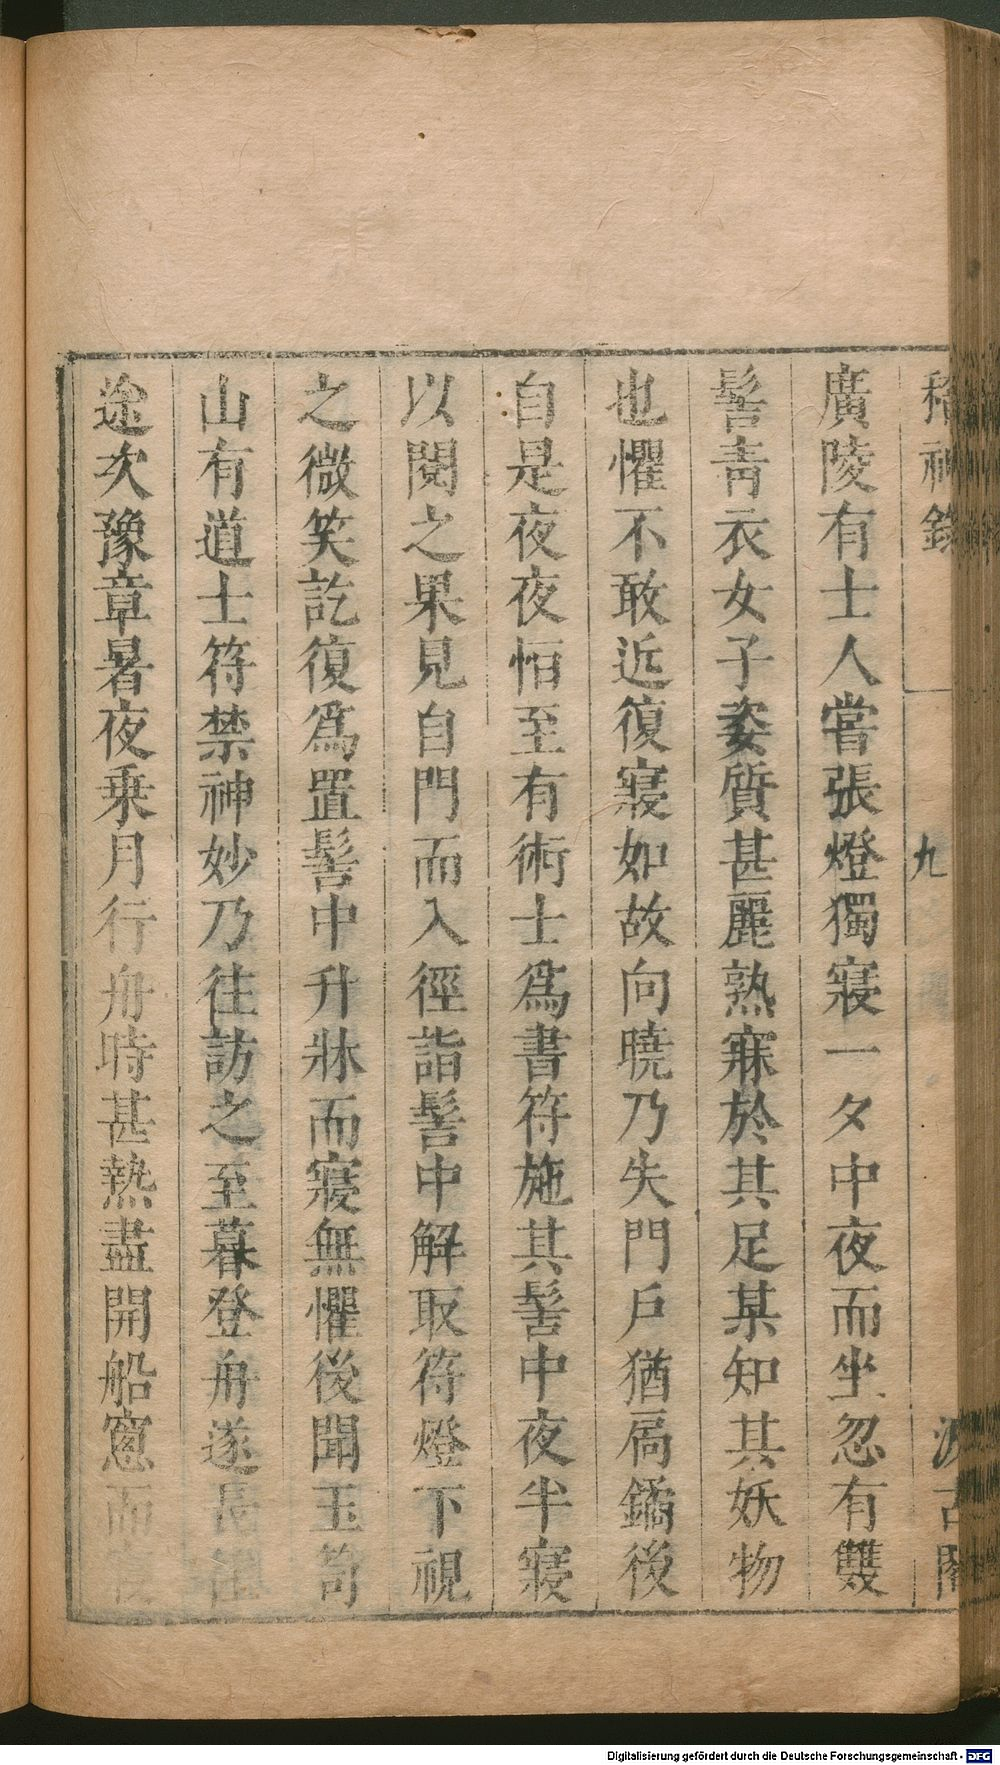 稽神錄
九
汲古閣
廣陵有士人嘗張燈獨寢一夕中夜而坐忽有雙
髻青衣女子姿質甚麗熟寐於其足某知其妖物
也懼不敢近復寢如故向曉乃失門戶猶扃鐍後
自是夜夜恒至有術士爲書符施其髻中夜半寢
以閱之果見自門而入徑詣髻中解取符燈下視
之微笑訖復爲置髻中升牀而寢無懼後聞玉笥
山有道士符禁神妙乃往訪之至暮登舟遂長往
途次豫章暑夜乘月行舟時甚熱盡開船窻而
Digitalisierung gefördert durch die Deutsche Forschungsgemeinschaft - DFG